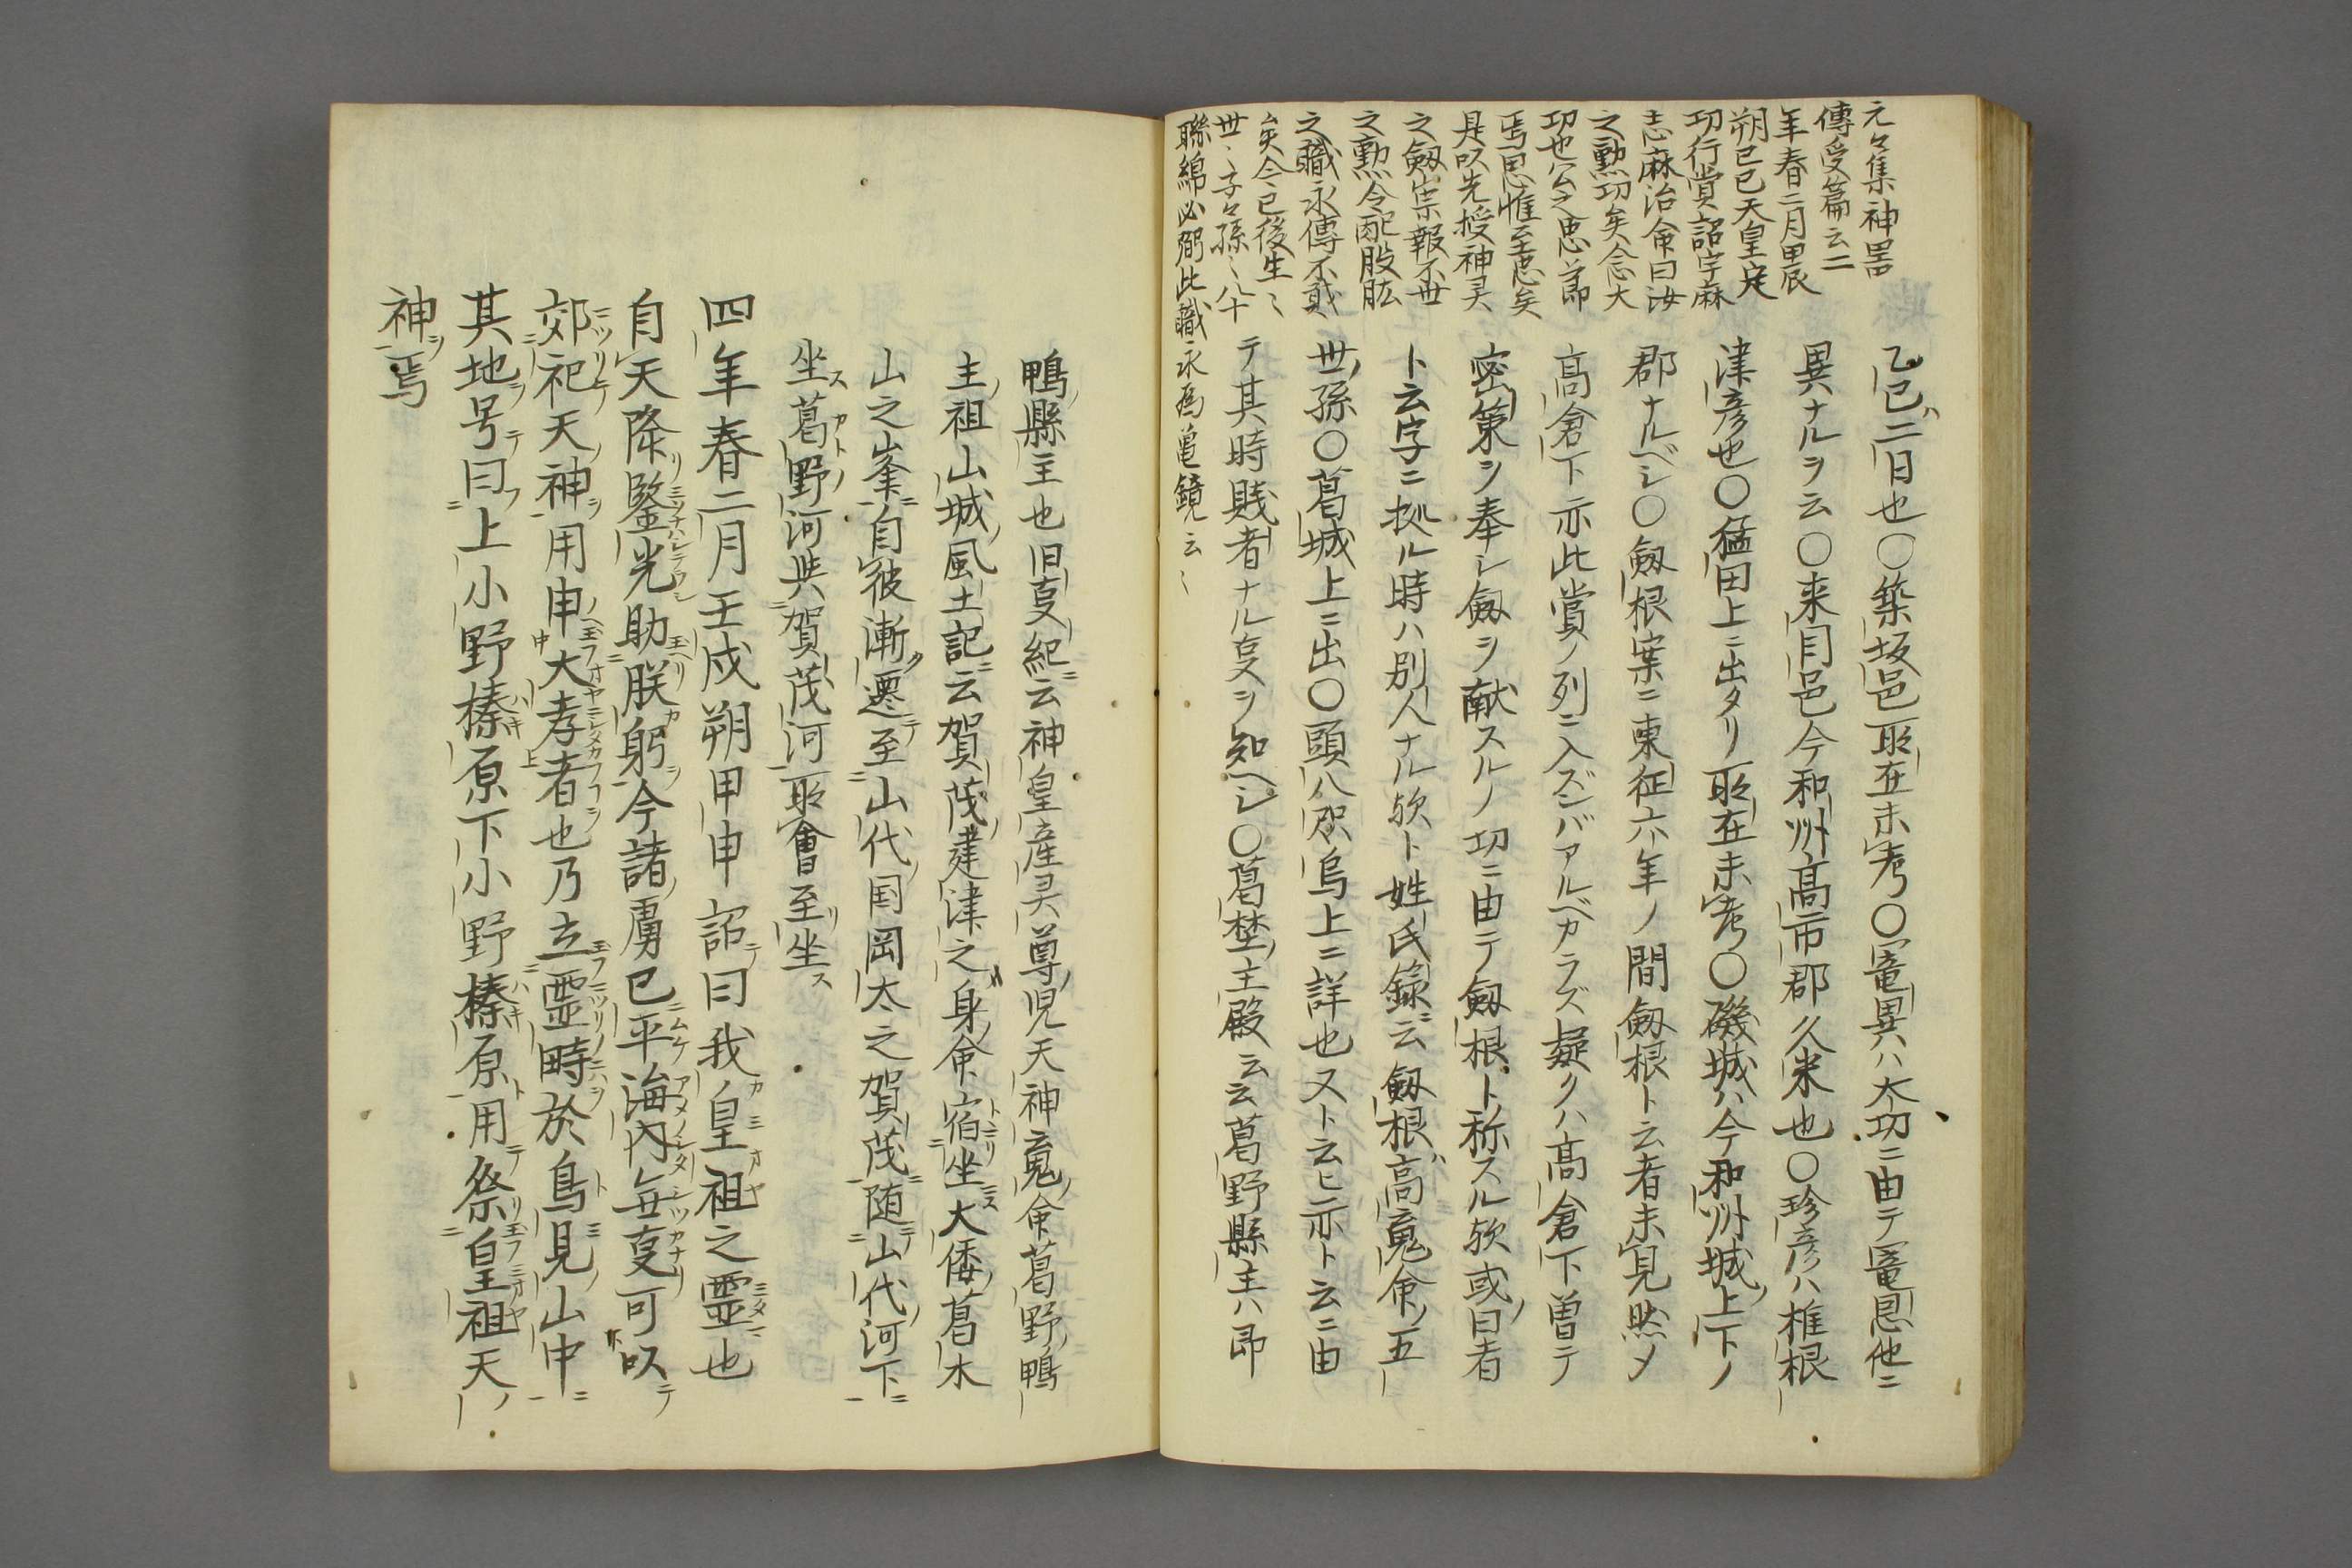 元々集神器
傳受篇云二
年春二月甲辰
朔己巳天皇定
功行賞詔宇麻
志麻治命曰汝
之勲功矣念大
功也公之忠節
焉思惟至忠矣
是以先授神灵
之劔崇報不世
之勲今配股肱
之職永傳不貳
矣今已後生〻
世〻子々孫〻八十
聯綿必弼此職永為亀鏡云〻
乙巳ハ二日也〇築坂邑所在未考〇寵異ハ大功ニ由テ寵恩他ニ
異ナルヲ云〇来目邑今和州高市郡久米也〇珍彦ハ椎根
津彦也〇猛田上ニ出タリ所在未考〇磯城ハ今和州城上下ノ
郡ナルベシ〇劔根案ニ東征六年ノ間劔根ト云者未見然ノ
高倉下亦此賞ノ列ニ入ズンバアルベカラズ疑クハ高倉下曽テ
密策ヲ奉シ劔ヲ献スルノ功ニ由テ劔根ト称スル欤或曰者
ト云字ニ拠ル時ハ別人ナル欤ト姓氏録ニ云劔根ハ高䰠命ノ五
世ノ孫〇葛城上ニ出〇頭八咫烏上ニ詳也又ト云ヒ亦ト云ニ由
テ其時賤者ナル叓ヲ知ヘシ〇葛埜主殿云云葛野縣主ハ即
鴨縣主也旧叓紀ニ云神皇産灵尊ノ児天神䰠命葛野ノ鴨
主ノ祖山城ノ風土記ニ云賀茂建津之身ノ命宿坐大倭ノ葛木
山之峯ニ自彼漸ク遷テ至山代ノ国岡太之賀茂ニ随山代ノ河下
坐ス葛野ノ河与賀茂河所會至リ坐ス
四年春二月壬戌朔甲申詔テ曰我皇祖之靈也
自天降リ鑒光助朕躬今諸ノ虜已平海内無叓可以テ
郊祀天神ヲ用申大孝者也乃立靈畤於鳥見ノ山中ニ
其地ヲ号テ曰フ上小野榛原下小野榛原ト用テ祭皇祖天ノ
神ヲ焉